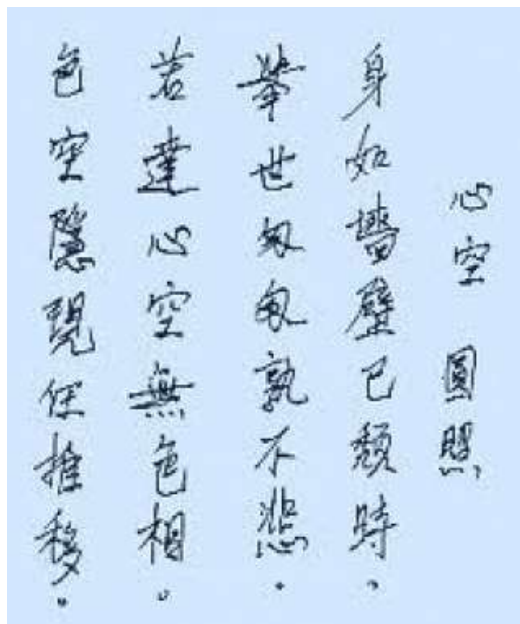 心空 圓照
身如墻壁已頹時。
舉世匆匆孰不悲。
若達心空無色相。
色空隱現任推移。